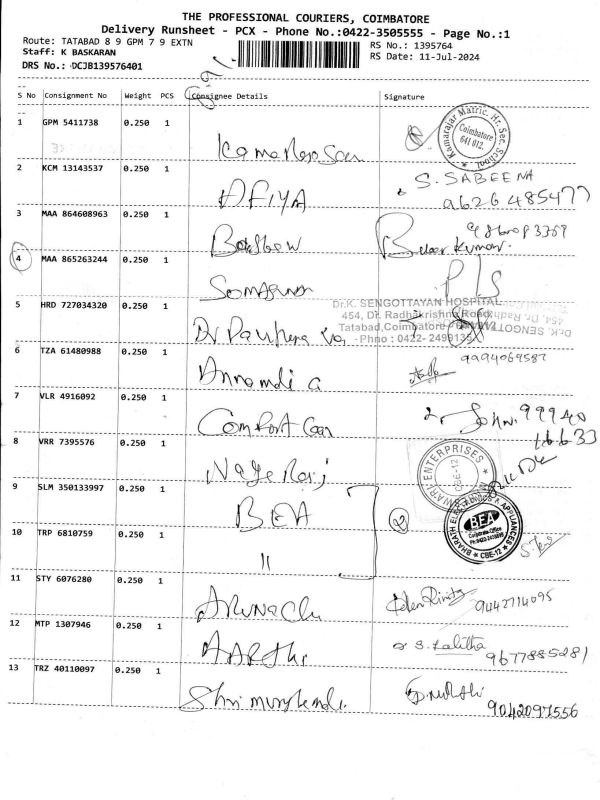 THE PROFESSIONAL COURIERS, COIMBATORE
Delivery Runsheet - PCX - Phone No.:0422-3505555 - Page No.:1
Route: TATABAD 8 9 GPM 7 9 EXTN
Staff: K BASKARAN
RS No.: 1395764
DRS No.: DCJB139576401
RS Date: 11-Jul-2024
S No Consignment No Weight PCS Consignee Details Signature
1 GPM 5411738 0.250 1
Kamarajar Matric. Hr. Sec. School
Coimbatore
641 012.
2 KCM 13143537 0.250 1 AFIYA S. SABEENA
9626485477
3 MAA 864608963 0.250 1 Kumar.
4 MAA 865263244 0.250 1
Dr.K. SENGOTTAYAN HOSPITAL
454, Dr. Radhakrishnan Road
5 HRD 727034320 0.250 1 Tatabad, Coimbatore
Phno : 0422-
6 TZA 61480988 0.250 1 9994069587
7 VLR 4916092 0.250 1 Comfort
John. 99940
16633
8 VRR 7395576 0.250 1 Nage Raj
ENTERPRISES
CBE-12
9 SLM 350133997 0.250 1 BEA
BEA
Corporate Office
CBE-12
10 TRP 6810759 0.250 1 "
11 STY 6076280 0.250 1 9042714095
12 MTP 1307946 0.250 1 AARthi S. Lalitha
9677885281
13 TRZ 40110097 0.250 1 Shri
9042097556